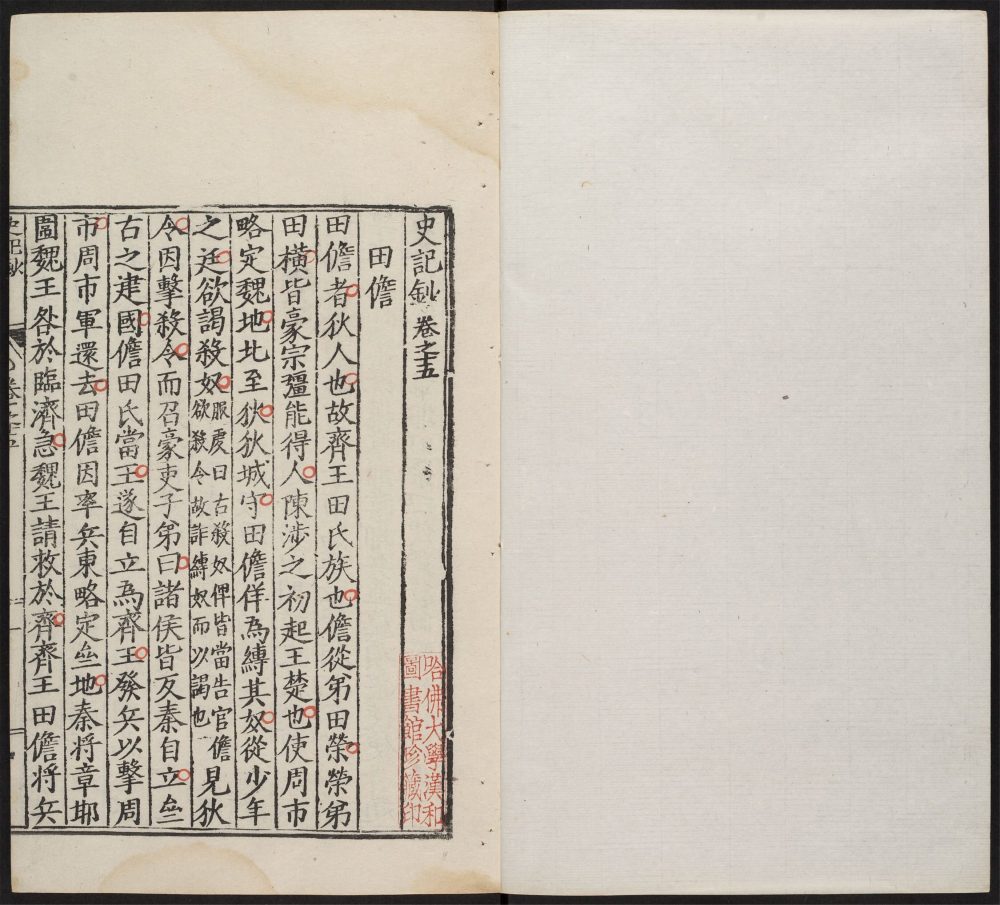 史記鈔 卷之十五
田儋
田儋者狄人也故齊王田氏族也儋從弟田榮榮弟
田橫皆豪宗彊能得人陳涉之初起王楚也使周市
略定魏地北至狄狄城守田儋佯為縛其奴從少年
之廷欲謁殺奴服虔曰古殺奴婢皆當告官儋欲殺令故詐縛奴而以謁也見狄
令因擊殺令而召豪吏子弟曰諸侯皆反秦自立亝
古之建國儋田氏當王遂自立為齊王發兵以擊周
市周市軍還去田儋因率兵東略定亝地秦將章邯
圍魏王咎於臨濟急魏王請救於齊齊王田儋將兵
哈佛大學漢和
圖書館珍藏印